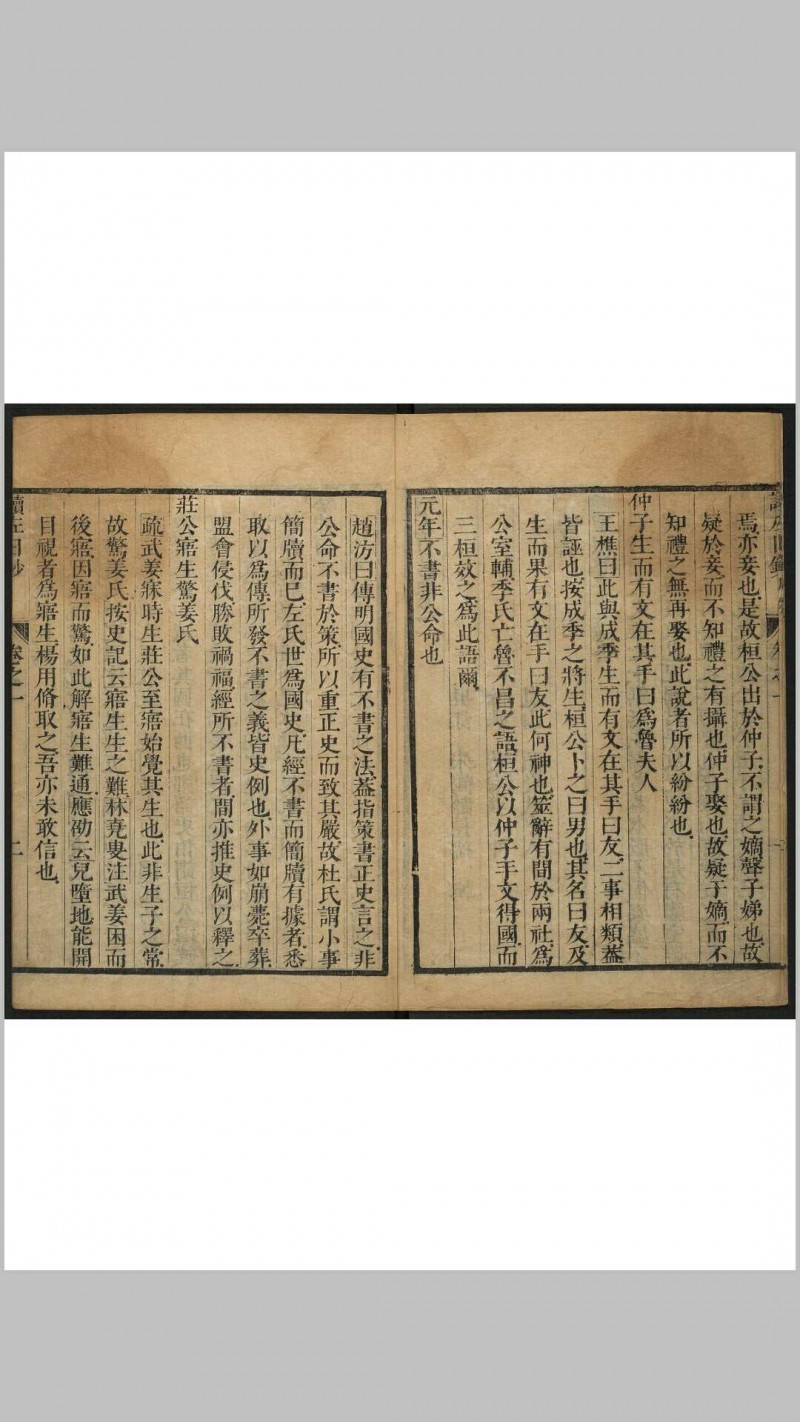 焉亦妾也是故桓公出於仲子不謂之嫡聲子娣也故
疑於妾而不知禮之有攝也仲子娶也故疑于嫡而不
知禮之無再娶也此說者所以紛紛也
仲子生而有文在其手曰爲魯夫人
王樵曰此與成季生而有文在其手曰友二事相類葢
皆誣也按成季之將生桓公卜之曰男也其名曰友及
生而果有文在手曰友此何神也筮辭有間於兩社爲
公室輔季氏亡魯不昌之語桓公以仲子手文得國而
三桓效之爲此語爾
元年不書非公命也
趙汸曰傳明國史有不書之法葢指策書正史言之非
公命不書於策所以重正史而致其嚴故杜氏謂小事
簡牘而已左氏世爲國史凡經不書而簡牘有據者悉
取以爲傳所發不書之義皆史例也外事如崩薨卒葬
盟會侵伐勝敗禍福經所不書者間亦推史例以釋之
莊公寤生驚姜氏
疏武姜寐時生莊公至寤始覺其生也此非生子之常
故驚姜氏按史記云寤生生之難林堯叟注武姜困而
後寤因寤而驚如此解寤生難通應劭云兒墮地能開
目視者爲寤生楊用脩取之吾亦未敢信也
讀左日鈔
卷之一
二